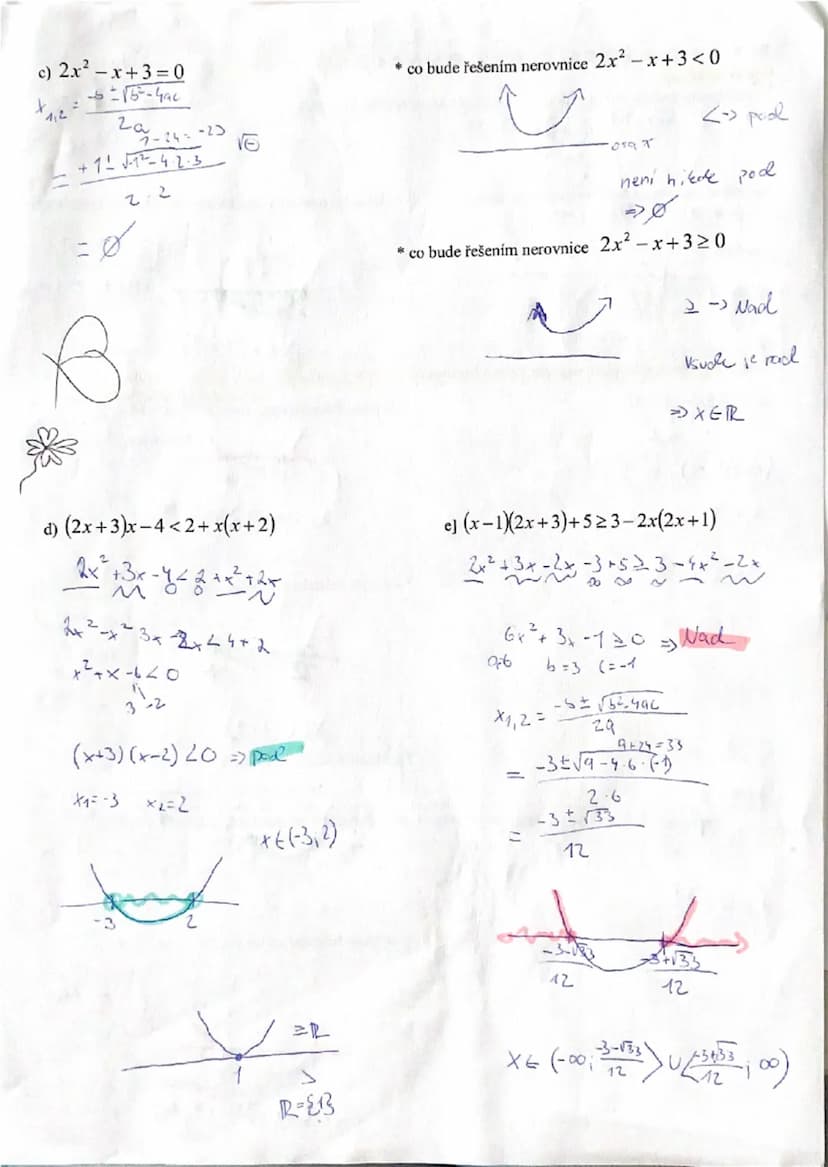 c) 2x² − x + 3 = 0
x₁,₂ = (-b ± √(b²-4ac)) / 2a
1-24 = -23
√⊖
= (+1 ± √(-1²-4·2·3)) / (2·2)
= ∅
* co bude řešením nerovnice 2x² − x + 3 < 0
< -> pod
osa x
není nikde pod
=> ∅
* co bude řešením nerovnice 2x² − x + 3 ≥ 0
≥ -> Nad
Všude je nad
=> x ∈ ℝ
d) (2x + 3)x − 4 < 2 + x(x + 2)
2x² + 3x - 4 < 2 + x² + 2x
2x² - x² 3x - 2x < 4 + 2
x² + x - 6 < 0
3 -2
(x+3)(x-2) < 0 => pod
x₁ = -3 x₂ = 2
x ∈ (-3, 2)
-3 2
≥ ℝ
1 >
ℝ = {1}
e) (x − 1)(2x + 3) + 5 ≥ 3 − 2x(2x + 1)
2x² + 3x - 2x - 3 + 5 ≥ 3 - 4x² - 2x
6x² + 3x - 1 ≥ 0 => Nad
a=6 b = 3 c = -1
x₁,₂ = (-b ± √(b²-4ac)) / 2a
9+24 = 33
= (-3 ± √(9 - 4·6·(-1))) / (2·6)
= (-3 ± √33) / 12
(-3-√33) / 12 (-3+√33) / 12
x ∈ (-∞; (-3-√33)/12⟩ ∪ ⟨(-3+√33)/12; ∞)